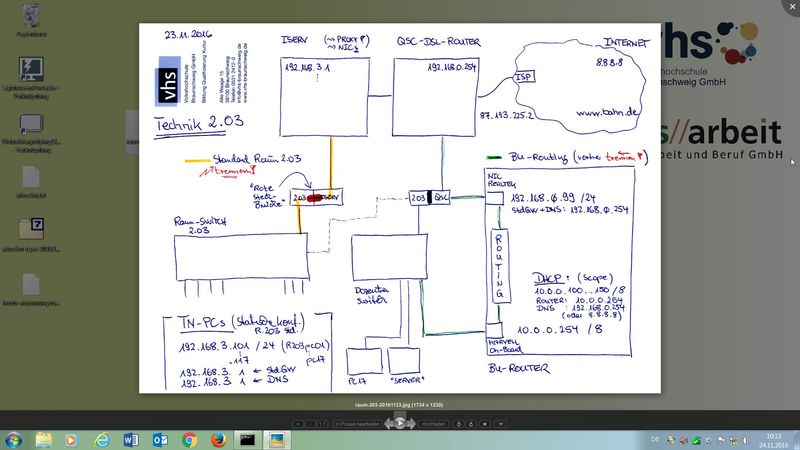 23.11.2016
vhs
Volkshochschule
Braunschweig GmbH
Bildung Qualifizierung Kultur
Alte Waage 15
38100 Braunschweig
Telefon 0531 2412-0
info@vhs-braunschweig.de
www.vhs-braunschweig.de
Technik 2.03
ISERV (→ PROXY?
→ NICs
192.168.3.1
QSC-DSL-ROUTER
192.168.0.254
INTERNET
8.8.8.8
ISP
www.bahn.de
87.193.225.2
Standard Raum 2.03
trennen!
"Rote
Steck-
Brücke"
203
ISERV
203
QSC
BU-Routing (vorher trennen!)
Raum-SWITCH
2.03
Dozenten
switch
PC17
"SERVER"
TN-PCs (statische Konf.
R.203 std.)
192.168.3.101 /24 (R203pc01)
.117
pc17
192.168.3.1 ← StdGW
192.168.3.1 ← DNS
NIC
REALTEK
192.168.0.99 /24
StdGW + DNS: 192.168.0.254
ROUTING
DHCP: (Scope)
10.0.0.100...150 /8
ROUTER: 10.0.0.254
DNS: 192.168.0.254
(oder 8.8.8.8)
10.0.0.254 /8
MARVELL
On-Board
BU-ROUTER
Papierkorb
vhs
hochschule
nschweig GmbH
s//arbeit
beit und Beruf GmbH
raum-203-20161123.jpg (1734 x 1239)
1:1
In Picasa bearbeiten
Hochladen
DE
10:13
24.11.2016